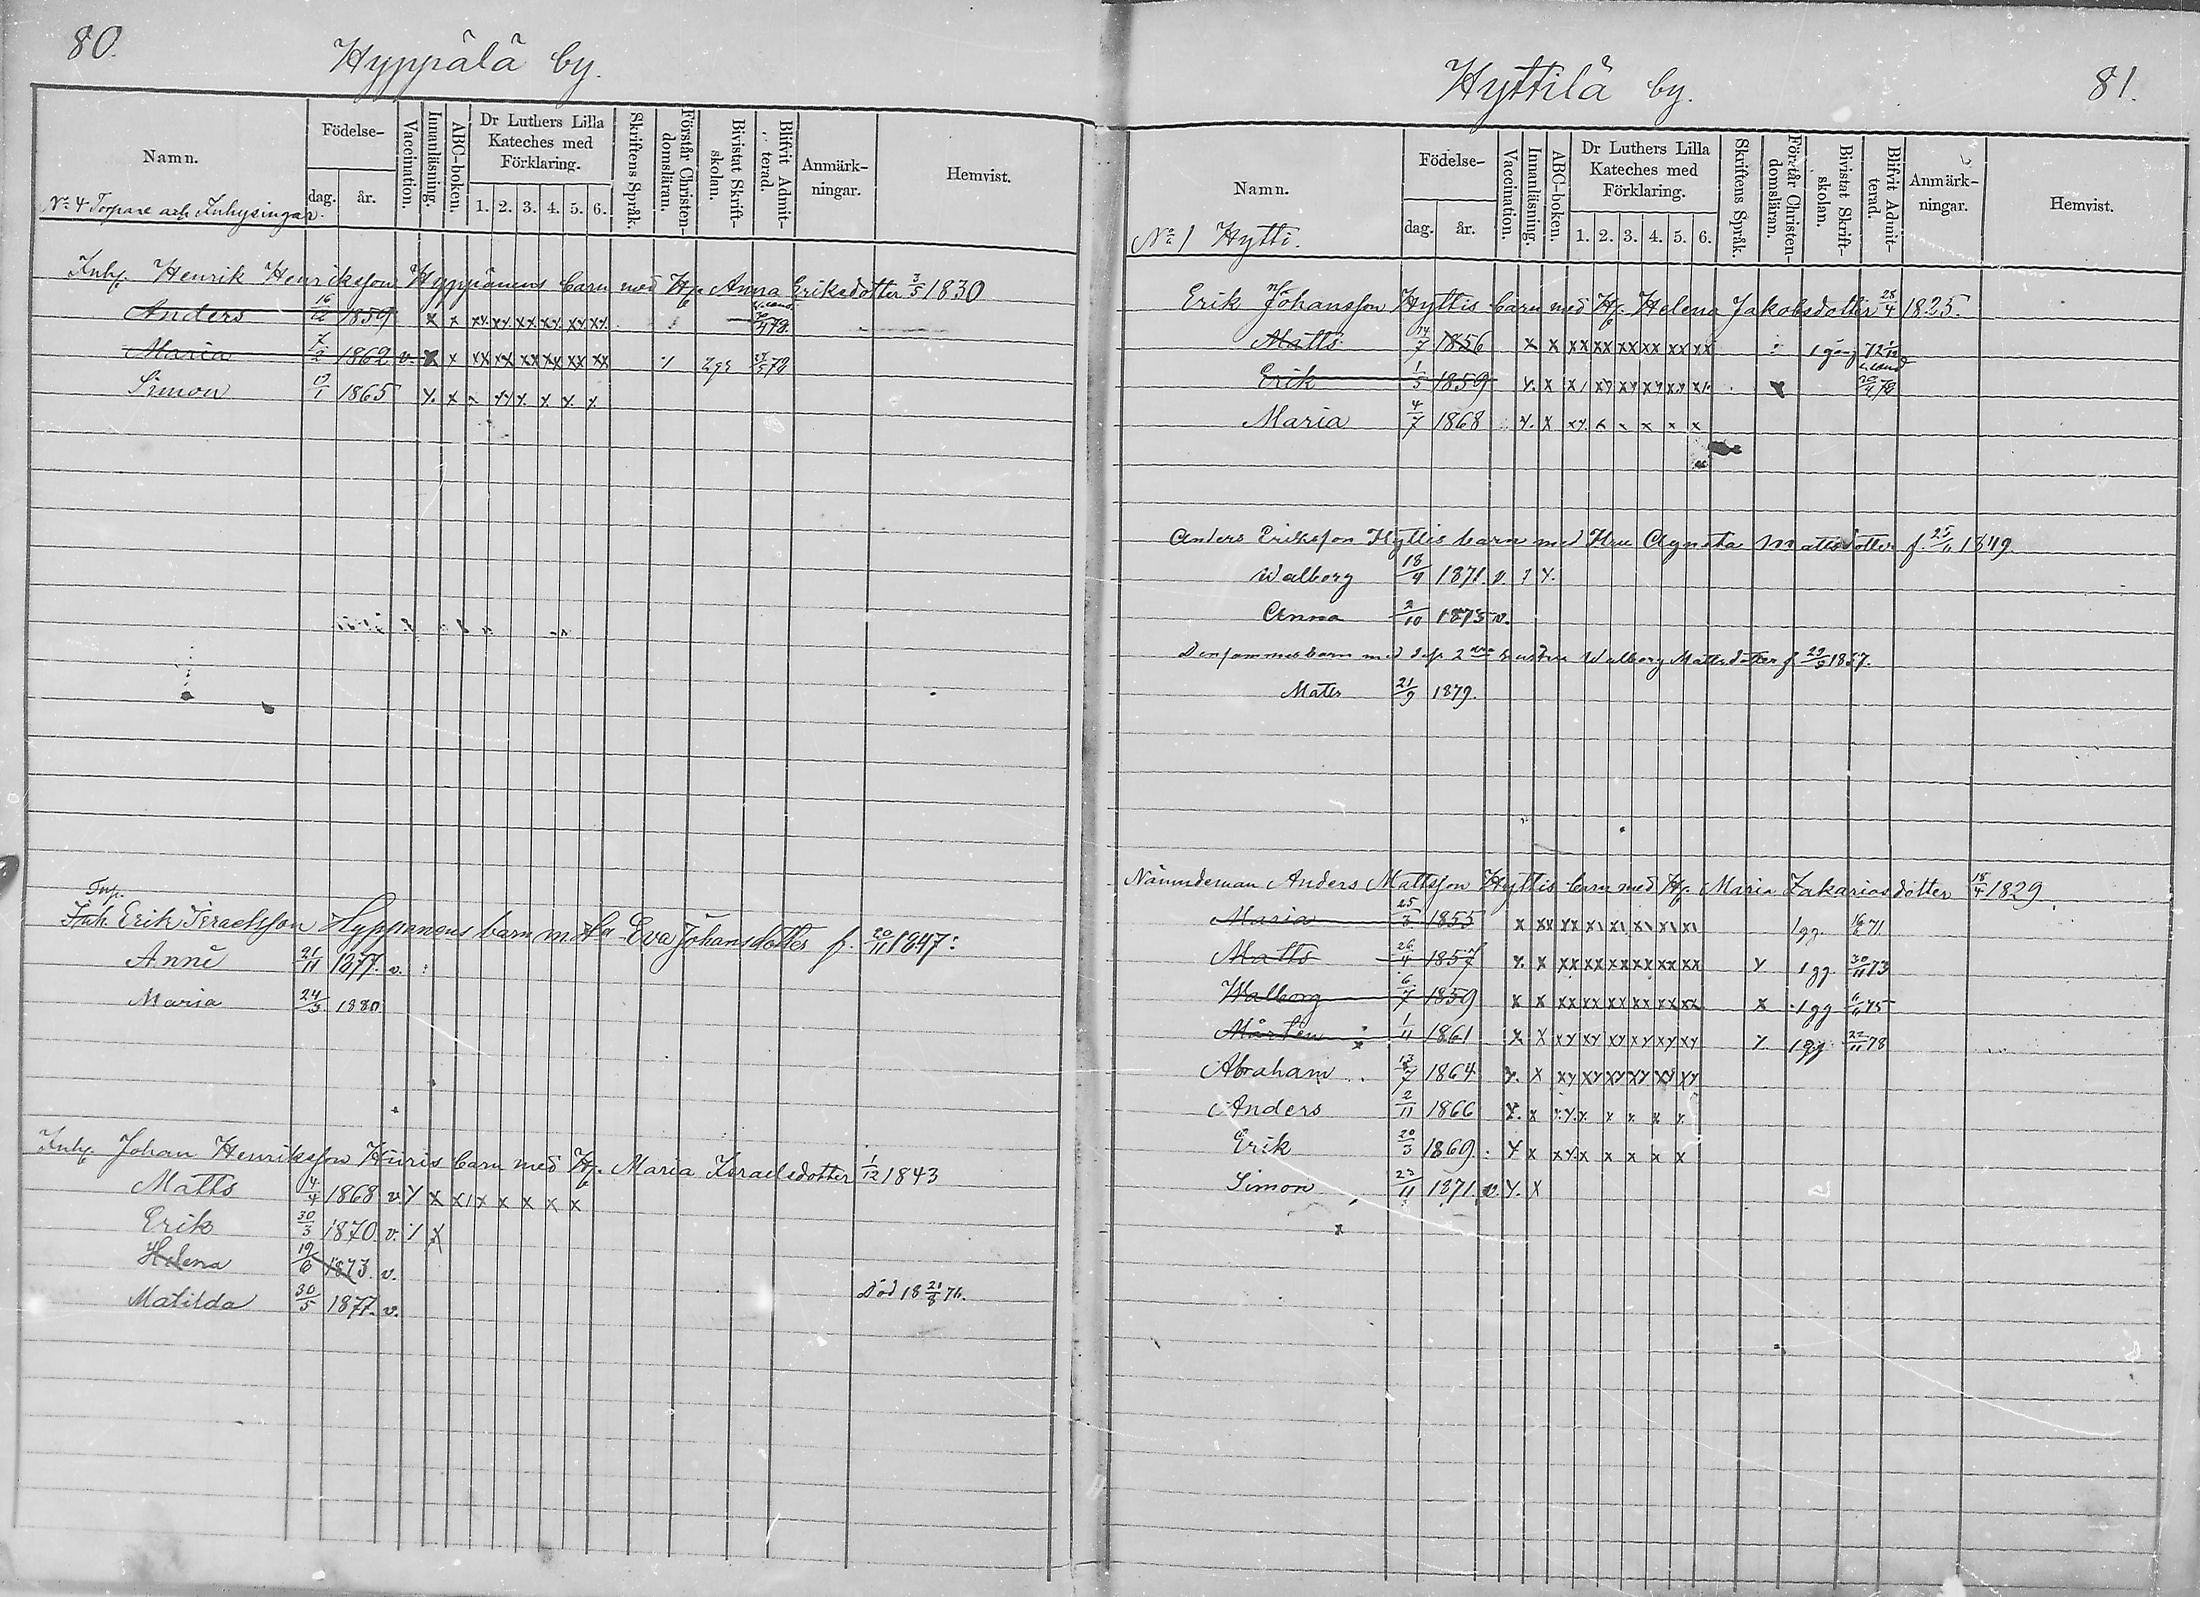 80.
Hyppälä by.
Namn.
Födelse-
dag. år.
Vaccination.
Innanläsning.
ABC-boken.
Dr Luthers Lilla Kateches med Förklaring.
1. 2. 3. 4. 5. 6.
Skriftens Språk.
Förstår Christendomsläran.
Bivistat Skriftskolan.
Blifvit Admitterad.
Anmärkningar.
Hemvist.
No 4 Torpare och Inhysingar.
Inh. Henrik Henriksson Hyppänens barn med H. Anna Eriksdotter 3/5 1830
Anders 16/12 1859 x x xx xx xx xx xx xx
Maria 7/2 1862 v. x x xx xx xx xx xx xx 2 gr
Simon 1865 x x x xx x x x
Torp.
Inh. Erik Israelsson Hyppinens barn m Ha Eva Johansdotter f. 20/11 1847:
Anna 21/11 1877. v.
Maria 24/3 1880
Inh. Johan Henriksson Huris barn med H. Maria Israelsdotter 1/12 1843
Matts 4/4 1868 v. x x x x x x x x
Erik 30/3 1870 v. x
Helena 19/6 1873. v.
Död 18 21/8 76.
Matilda 30/5 1877. v.
Hyttilä by.
81.
Namn.
Födelse-
dag. år.
Vaccination.
Innanläsning.
ABC-boken.
Dr Luthers Lilla Kateches med Förklaring.
1. 2. 3. 4. 5. 6.
Skriftens Språk.
Förstår Christendomsläran.
Bivistat Skriftskolan.
Blifvit Admitterad.
Anmärkningar.
Hemvist.
No 1 Hytti.
Erik Johansson Hyttis barn med H. Helena Jakobsdotter 28/4 1825.
Matts 14/7 1856 x x xx xx xx xx xx xx 1 gång
Erik 1/5 1859 x x x xx xx xx xx xx x
Maria 4/7 1868 x x xx x x x x x
Anders Eriksson Hyttis barn med Hru Agneta Mattsdotter f. 25/11 1849
Walborg 18/9 1871. v. x
Anna 2/10 1875 v.
Densammes barn med dess 2dra hustru Walborg Mattsdotter f. 1857.
Matts 21/9 1879.
Nämndeman Anders Mattsson Hyttis barn med H. Maria Zakariasdotter 18/4 1829.
Maria 25/3 1855 x xx xx xx xx xx xx 1 gg. 71
Matts 26/4 1857 x x xx xx xx xx xx xx x 1 gg. 30/11 73
Walborg 6/7 1859 x x xx xx xx xx xx xx x 1 gg 75
Mårten 1/11 1861 x x xx xx xx xx xx xx x 1 gg 22/11 78
Abraham 13/7 1864 x x xx xx xx xx xx xx
Anders 2/11 1866 x x xx x x x x x
Erik 20/3 1869. x x xx x x x x x
Simon 23/11 1871. v. x x